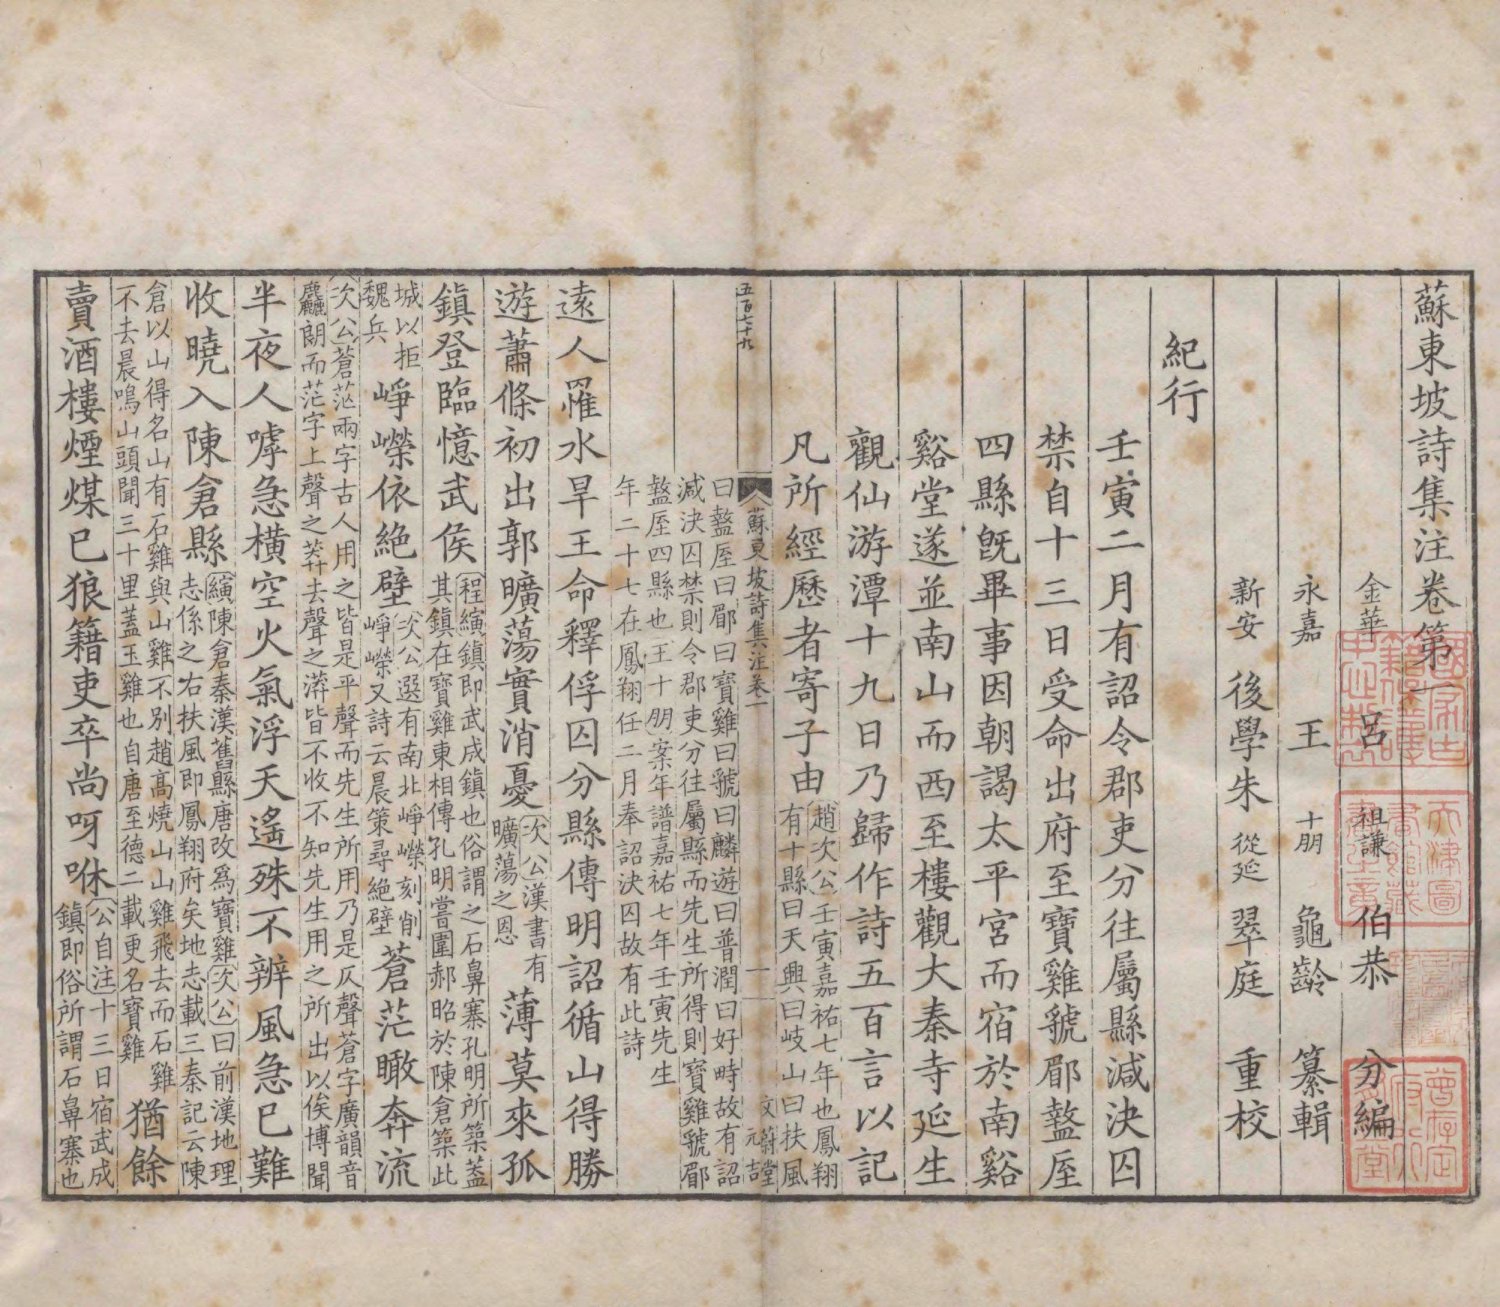 蘇東坡詩集注卷第一
金華 呂 祖謙 伯恭 分編
永嘉 王 十朋 龜齡 纂輯
新安 後學朱 從延 翠庭 重校
紀行
壬寅二月有詔令郡吏分往屬縣減決囚
禁自十三日受命出府至寶雞虢郿盩厔
四縣旣畢事因朝謁太平宮而宿於南谿
谿堂遂並南山而西至樓觀大秦寺延生
觀仙游潭十九日乃歸作詩五百言以記
凡所經歷者寄子由
趙次公壬寅嘉祐七年也鳳翔
有十縣曰天興曰岐山曰扶風
蘇東坡詩集注卷一
一
文蔚堂
元吉
五百七十九
曰盩厔曰郿曰寶雞曰虢曰麟遊曰普潤曰好畤故有詔
減決囚禁則令郡吏分往屬縣而先生所得則寶雞虢郿
盩厔四縣也王十朋案年譜嘉祐七年壬寅先生
年二十七在鳳翔任二月奉詔決囚故有此詩
遠人罹水旱王命釋俘囚分縣傳明詔循山得勝
遊蕭條初出郭曠蕩實消憂
次公漢書有
曠蕩之恩
薄莫來孤
鎮登臨憶武侯
程縯鎮即武成鎮也俗謂之石鼻寨孔明所築蓋
其鎮在寶雞東相傳孔明嘗圍郝昭於陳倉築此
城以拒
魏兵
崢嶸依絶壁
次公選有南北崢嶸刻削
崢嶸又詩云晨策尋絶壁
蒼茫瞰奔流
次公蒼茫兩字古人用之皆是平聲而先生所用乃是仄聲蒼字廣韻音
麤朗而茫字上聲之莽去聲之漭皆不收不知先生用之所出以俟博聞
半夜人嘑急橫空火氣浮天遙殊不辨風急已難
收曉入陳倉縣
縯陳倉秦漢舊縣唐改爲寶雞次公曰前漢地理
志係之右扶風即鳳翔府矣地志載三秦記云陳
倉以山得名山有石雞與山雞不別趙高燒山山雞飛去而石雞
不去晨鳴山頭聞三十里蓋玉雞也自唐至德二載更名寶雞
猶餘
賣酒樓煙煤已狼籍吏卒尚呀咻
公自注十三日宿武成
鎮即俗所謂石鼻寨也